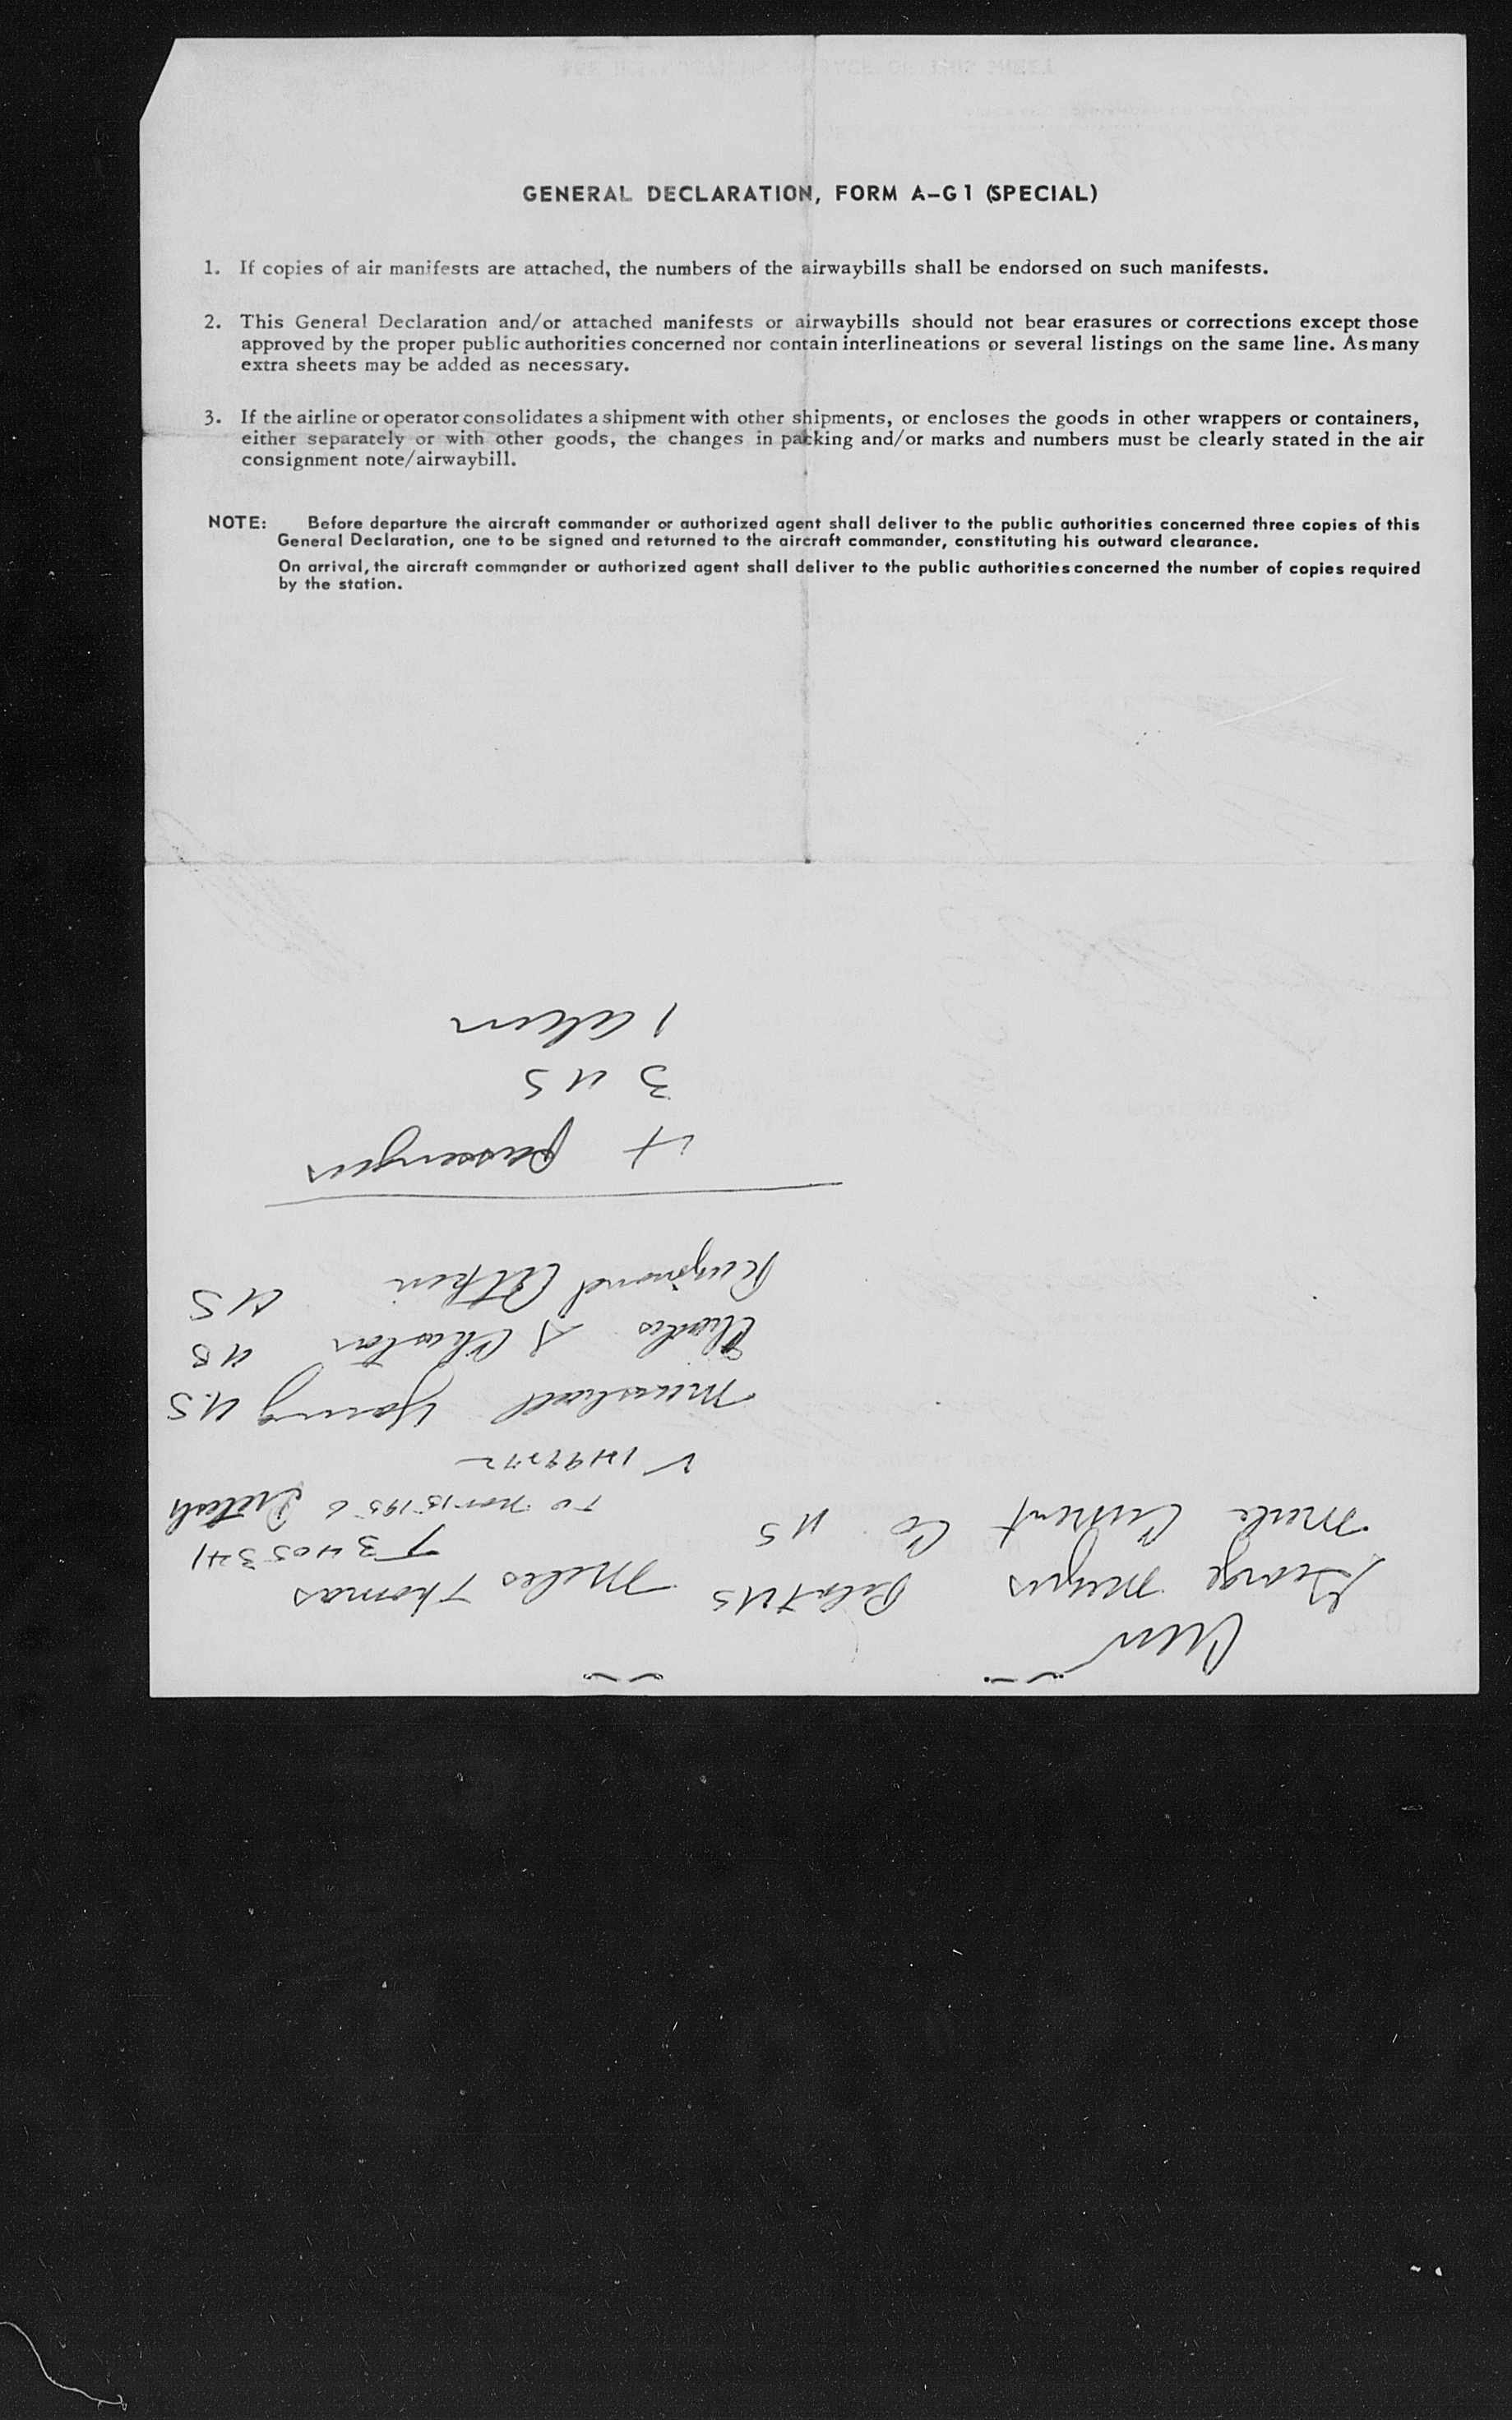 GENERAL DECLARATION, FORM A-G1 (SPECIAL)
1. If copies of air manifests are attached, the numbers of the airwaybills shall be endorsed on such manifests.
2. This General Declaration and/or attached manifests or airwaybills should not bear erasures or corrections except those
approved by the proper public authorities concerned nor contain interlineations or several listings on the same line. As many
extra sheets may be added as necessary.
3. If the airline or operator consolidates a shipment with other shipments, or encloses the goods in other wrappers or containers,
either separately or with other goods, the changes in packing and/or marks and numbers must be clearly stated in the air
consignment note/airwaybill.
NOTE: Before departure the aircraft commander or authorized agent shall deliver to the public authorities concerned three copies of this
General Declaration, one to be signed and returned to the aircraft commander, constituting his outward clearance.
On arrival, the aircraft commander or authorized agent shall deliver to the public authorities concerned the number of copies required
by the station.
Crew
George US
Co US
Miles Thomas
3405341
to Nov 15 1956 British
V
Marshall Young US
Charles S US
Raymond US
4 passengers
3 US
1 alien